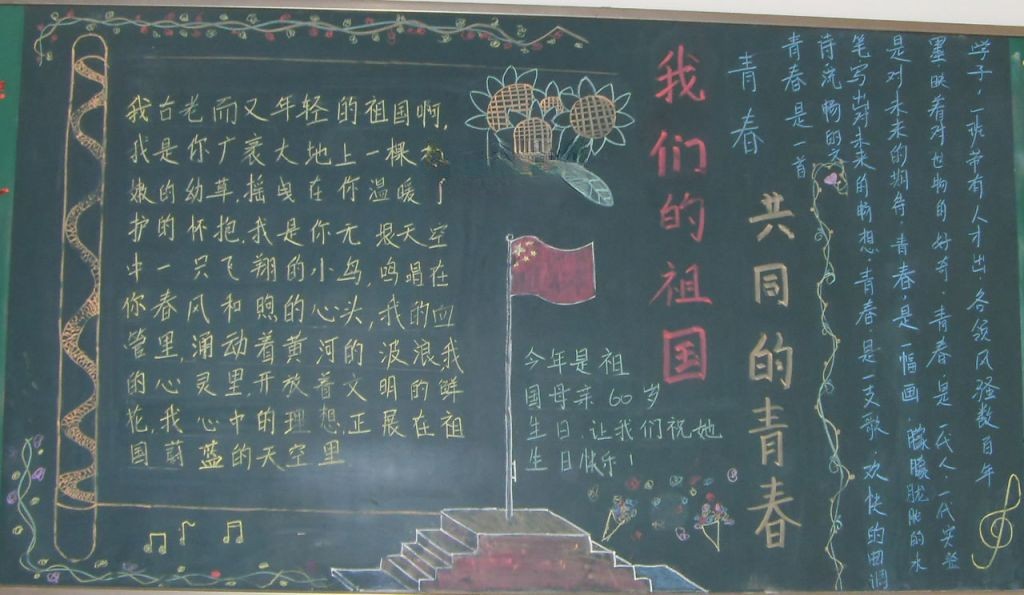 我们的祖国
共同的青春
我古老而又年轻的祖国啊,
我是你广袤大地上一棵
嫩的幼草,摇曳在你温暖
护的怀抱,我是你无垠天空
中一只飞翔的小鸟,鸣唱在
你春风和煦的心头,我的血
管里涌动着黄河的波浪我
的心灵里开放着文明的鲜
花,我心中的理想正展在祖
国蔚蓝的天空里
今年是祖
国母亲60岁
生日,让我们祝她
生日快乐!
青春
青春是一首
诗流畅的
笔写出对未来的畅想.青春.是一支歌.欢快的曲调
是对未来的期待 青春,是一幅画 朦朦胧胧的水
墨映着对世物的好奇.青春是一代人.一代
学子,一班带有人才出 各领风骚数百年